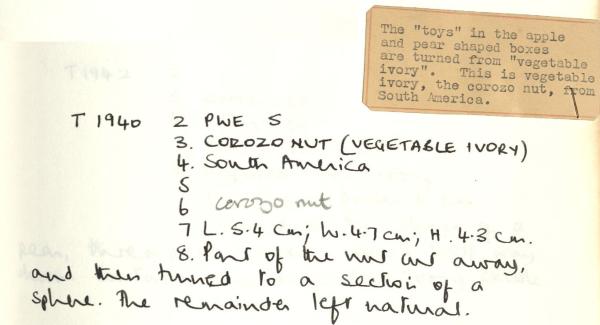 The "toys" in the apple
and pear shaped boxes
are turned from "vegetable
ivory". This is vegetable
ivory, the corozo nut, from
South America.
T 1940 2 PWE S
3. COROZO NUT (VEGETABLE IVORY)
4. South America
5
6 corozo nut
7 L. 5.4 cm; W. 4.7 cm; H. 4.3 cm.
8. Part of the nut cut away,
and then turned to a section of a
sphere. The remainder left natural.